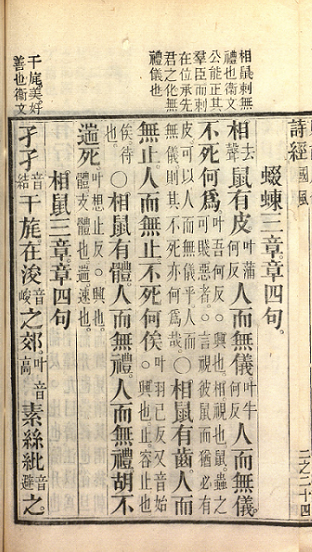 相鼠刺無
禮也衛文
公能正其
羣臣而刺
在位承先
君之化無
禮儀也
干旄美好
善也衛文
詩經 國風 三之二十四
蝃蝀三章章四句。
相去聲鼠有皮叶蒲何反人而無儀叶牛何反人而無儀。
不死何爲叶吾何反○興也相視也鼠蟲之可賤惡者○言視彼鼠而猶必有
皮可以人而無儀乎人而無儀則其不死亦何爲哉○相鼠有齒人而
無止人而無止不死何俟叶羽已反又音始○興也止容止也
俟待也○相鼠有體人而無禮人而無禮胡不
遄死叶想止反○興也體支體也遄速也
相鼠三章章四句
孑孑音結干旄在浚音峻之郊叶音高素絲紕音避之